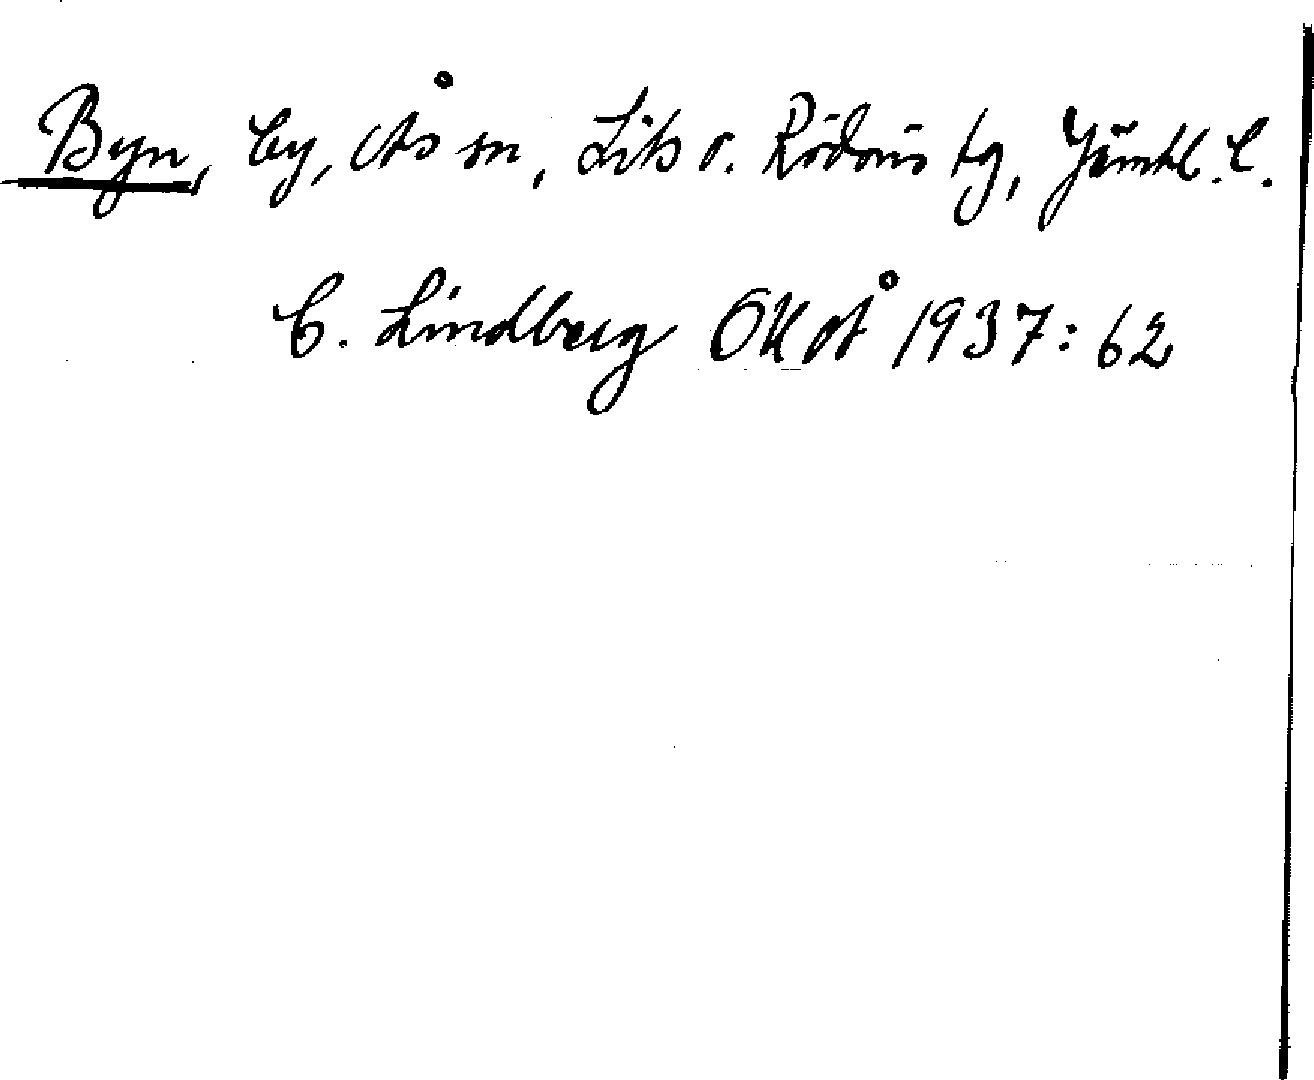 Byn, by, Ås sn, Lits o. Rödöns tg, Jämtl. l.
C. Lindberg OUOÅ 1937:62